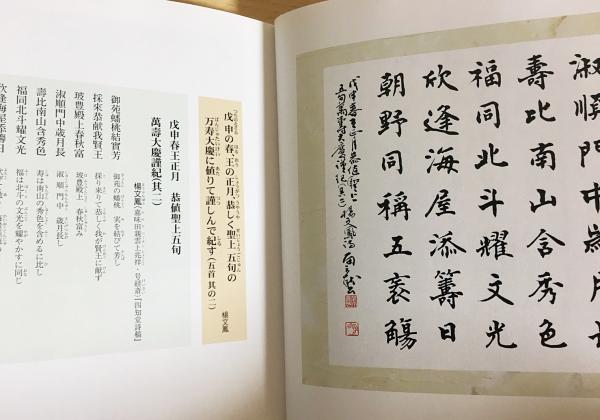 淑順門中歳月長
壽比南山含秀色
福同北斗耀文光
欣逢海屋添籌日
朝野同稱五袠觴
戊申春王正月恭值聖上 楊文鳳詩
五旬萬壽大慶謹記(其二)
戊申の春王の正月 恭しく聖上 五旬の
万寿大慶に値りて謹しんで紀す（五首 其の二） 楊文鳳
戊申春王正月 恭値聖上五旬
萬壽大慶謹紀（其二）
楊文鳳（嘉味田親雲上兆祥・号経斎）『四知堂詩稿』
御苑蟠桃結實芳 御苑の蟠桃 実を結びて芳し
採來恭献我賢王 採り来りて恭しく我が賢王に献ず
玻豊殿上春秋富 玻豊殿上 春秋富み
淑順門中歳月長 淑順門中 歳月長し
壽比南山含秀色 寿は南山の秀色を含めるに比し
福同北斗耀文光 福は北斗の文光を耀やかすに同じ
欣逢海屋添籌日